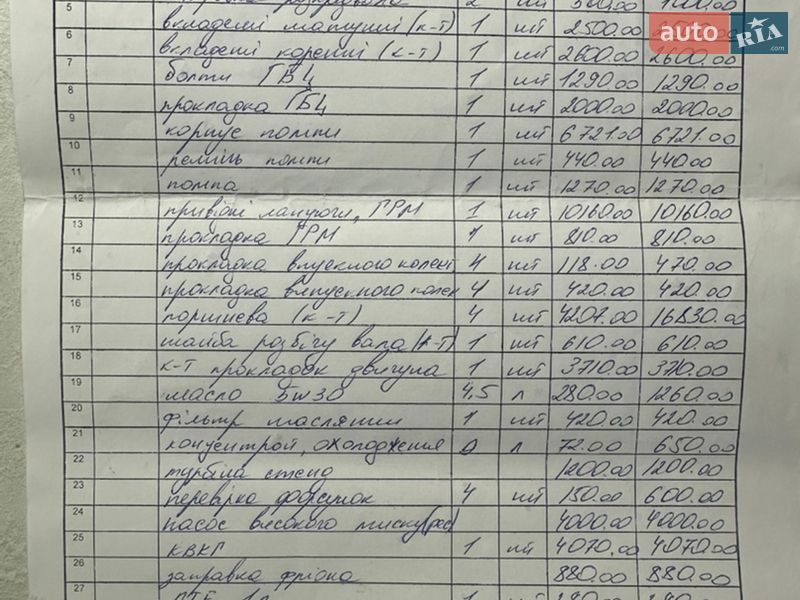 5 2 шт 500.00 1000.00
вкладеші шатунні (к-т) 1 шт 2500.00
6 вкладеші коренні (к-т) 1 шт 2600.00 2600.00
7 болти ГБЦ 1 шт 1290.00 1290.00
8 прокладка ГБЦ 1 шт 2000.00 2000.00
9 корпус помпи 1 шт 6721.00 6721.00
10 ремінь помпи 1 шт 440.00 440.00
11 помпа 1 шт 1270.00 1270.00
12 привідні ланцюги, ГРМ 1 шт 10160.00 10160.00
13 прокладка ГРМ 1 шт 810.00 810.00
14 прокладка впускного колект 4 шт 118.00 470.00
15 прокладка випускного колек 1 шт 420.00 420.00
16 поршнева (к-т) 4 шт 4207.00 16830.00
17 шайба розбігу вала (к-т) 1 шт 610.00 610.00
18 к-т прокладок двигуна 1 шт 3710.00 3710.00
19 масло 5w30 4,5 л 280.00 1260.00
20 фільтр масляний 1 шт 420.00 420.00
21 концентрат, охолодження 9 л 72.00 650.00
22 турбіна стенд 1200.00 1200.00
23 перевірка форсунок 4 шт 150.00 600.00
24 насос високого тиску(рес) 4000.00 4000.00
25 КВКГ 1 шт 4070.00 4070.00
26 заправка фріона 880.00 880.00
27
auto RIA.com